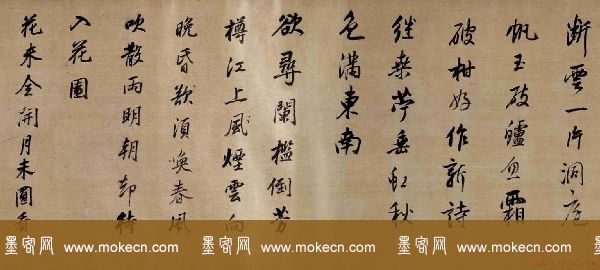 斷雲一片洞庭
帆玉破鱸魚霜
破柑好作新詩
継桑苧垂虹秋
色滿東南
欲尋闌檻倒芳
樽江上風煙雲向
晚昏須喚春風
吹散雨明朝却待
入花園
花未全開月未圓看
墨客网 www.mokecn.com 墨客网 www.mokecn.com 墨客网 www.mokecn.com